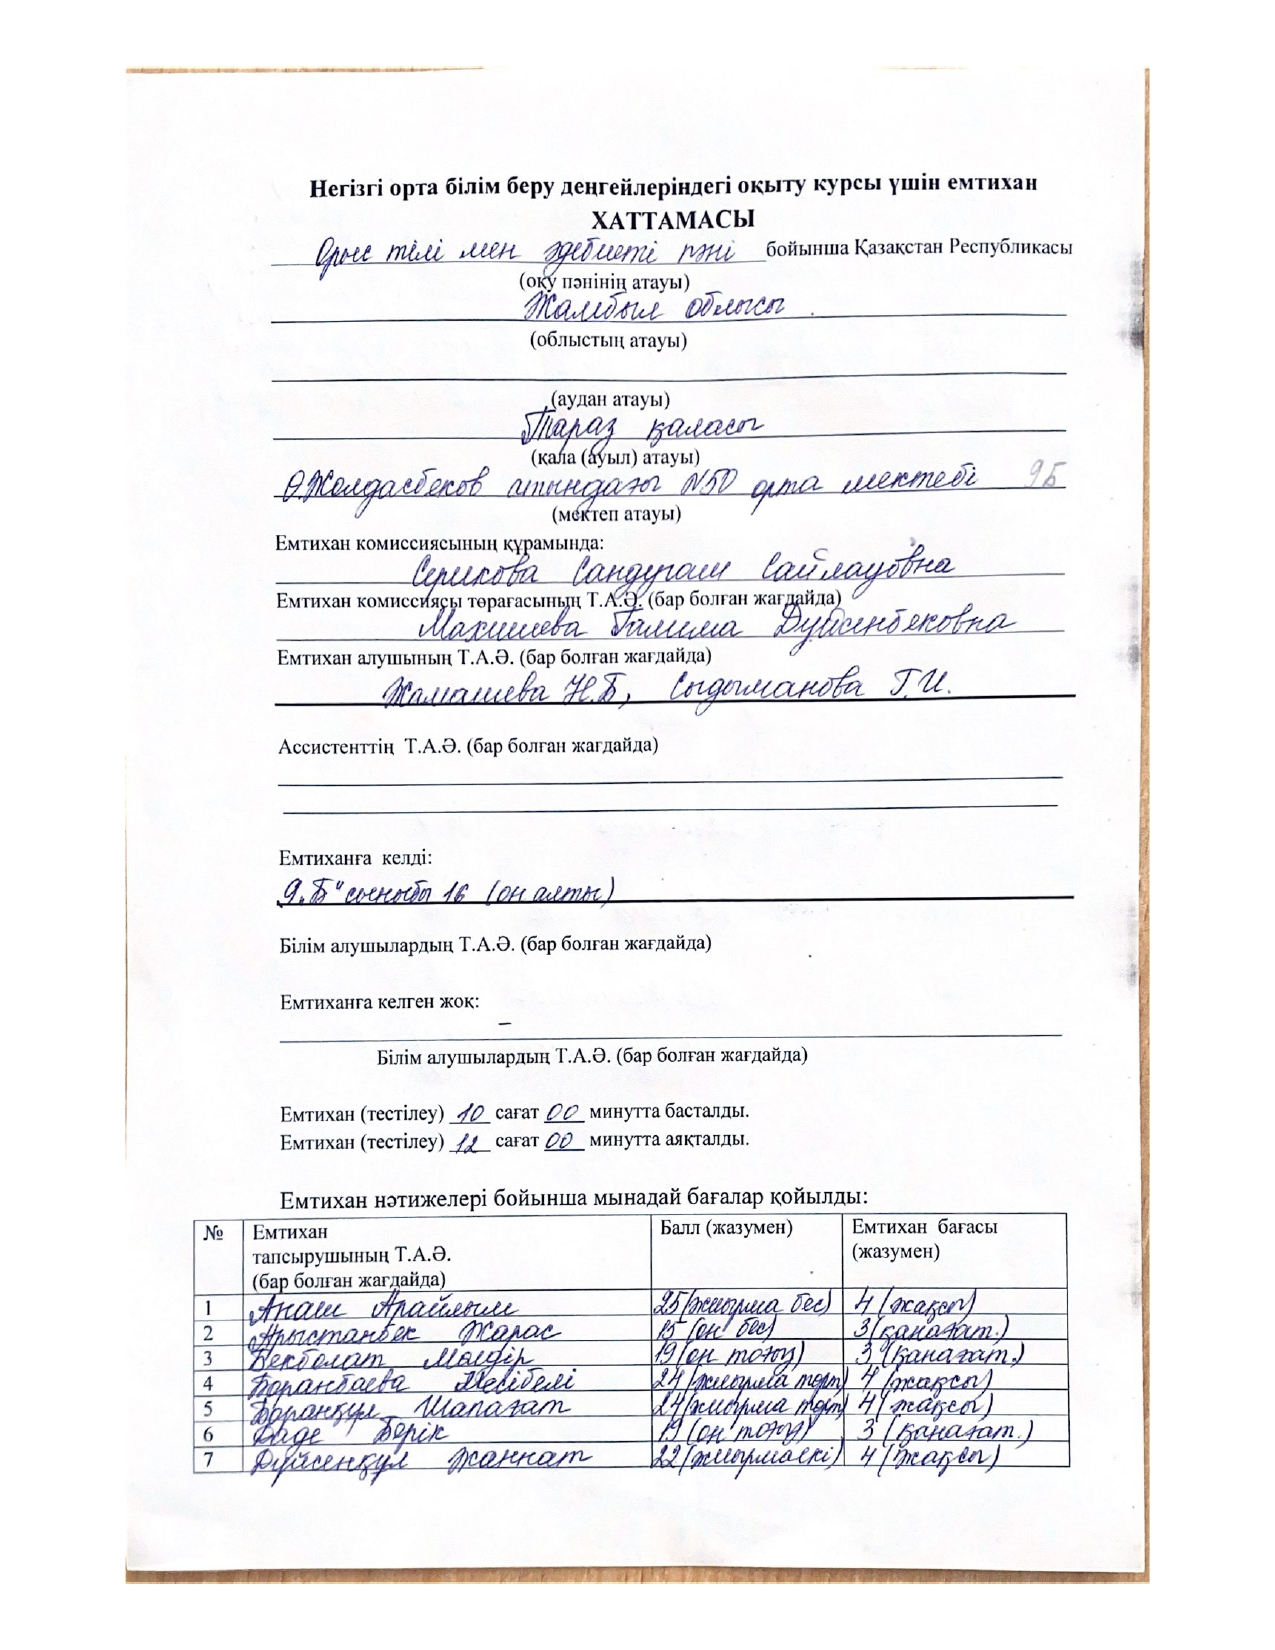 Негізгі орта білім беру деңгейлеріндегі оқыту курсы үшін емтихан
ХАТТАМАСЫ
Орыс тілі мен әдебиеті пәні бойынша Қазақстан Республикасы
(оқу пәнінің атауы)
Жамбыл облысы
(облыстың атауы)
(аудан атауы)
Тараз қаласы
(қала (ауыл) атауы)
Ө.Жолдасбеков атындағы №50 орта мектебі 9Б
(мектеп атауы)
Емтихан комиссиясының құрамында:
Серикова Сандуғаш Сайлауовна
Емтихан комиссиясы төрағасының Т.А.Ә. (бар болған жағдайда)
Махишева Галима Дуйсенбековна
Емтихан алушының Т.А.Ә. (бар болған жағдайда)
Жамашева Н.Б, Сыдыманова Г.И.
Ассистенттің Т.А.Ә. (бар болған жағдайда)
Емтиханға келді:
9 „Б" сыныбы 16 (он алты)
Білім алушылардың Т.А.Ә. (бар болған жағдайда)
Емтиханға келген жоқ:
–
Білім алушылардың Т.А.Ә. (бар болған жағдайда)
Емтихан (тестілеу) 10 сағат 00 минутта басталды.
Емтихан (тестілеу) 12 сағат 00 минутта аяқталды.
Емтихан нәтижелері бойынша мынадай бағалар қойылды:
№ Емтихан тапсырушының Т.А.Ә. (бар болған жағдайда) Балл (жазумен) Емтихан бағасы (жазумен)
1 Анаш Арайлым 25 (жиырма бес) 4 (жақсы)
2 Арыстанбек Жарас 15 (он бес) 3 (қанағат.)
3 Бекболат Мөлдір 19 (он тоғыз) 3 (қанағат.)
4 Баранбаева Несібелі 24 (жиырма төрт) 4 (жақсы)
5 Баранқұл Шапағат 24 (жиырма төрт) 4 (жақсы)
6 Дәде Берік 19 (он тоғыз) 3 (қанағат.)
7 Дүйсенқұл Жаннат 22 (жиырма екі) 4 (жақсы)